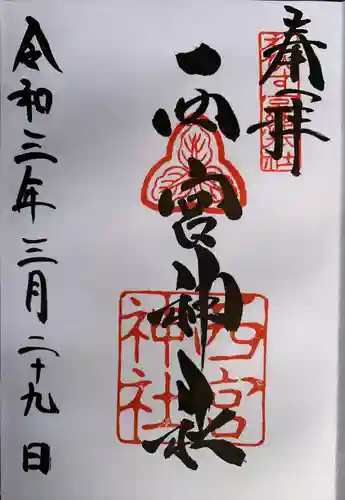 奉拝
西宮神社
西宮神社
令和三年三月二十九日